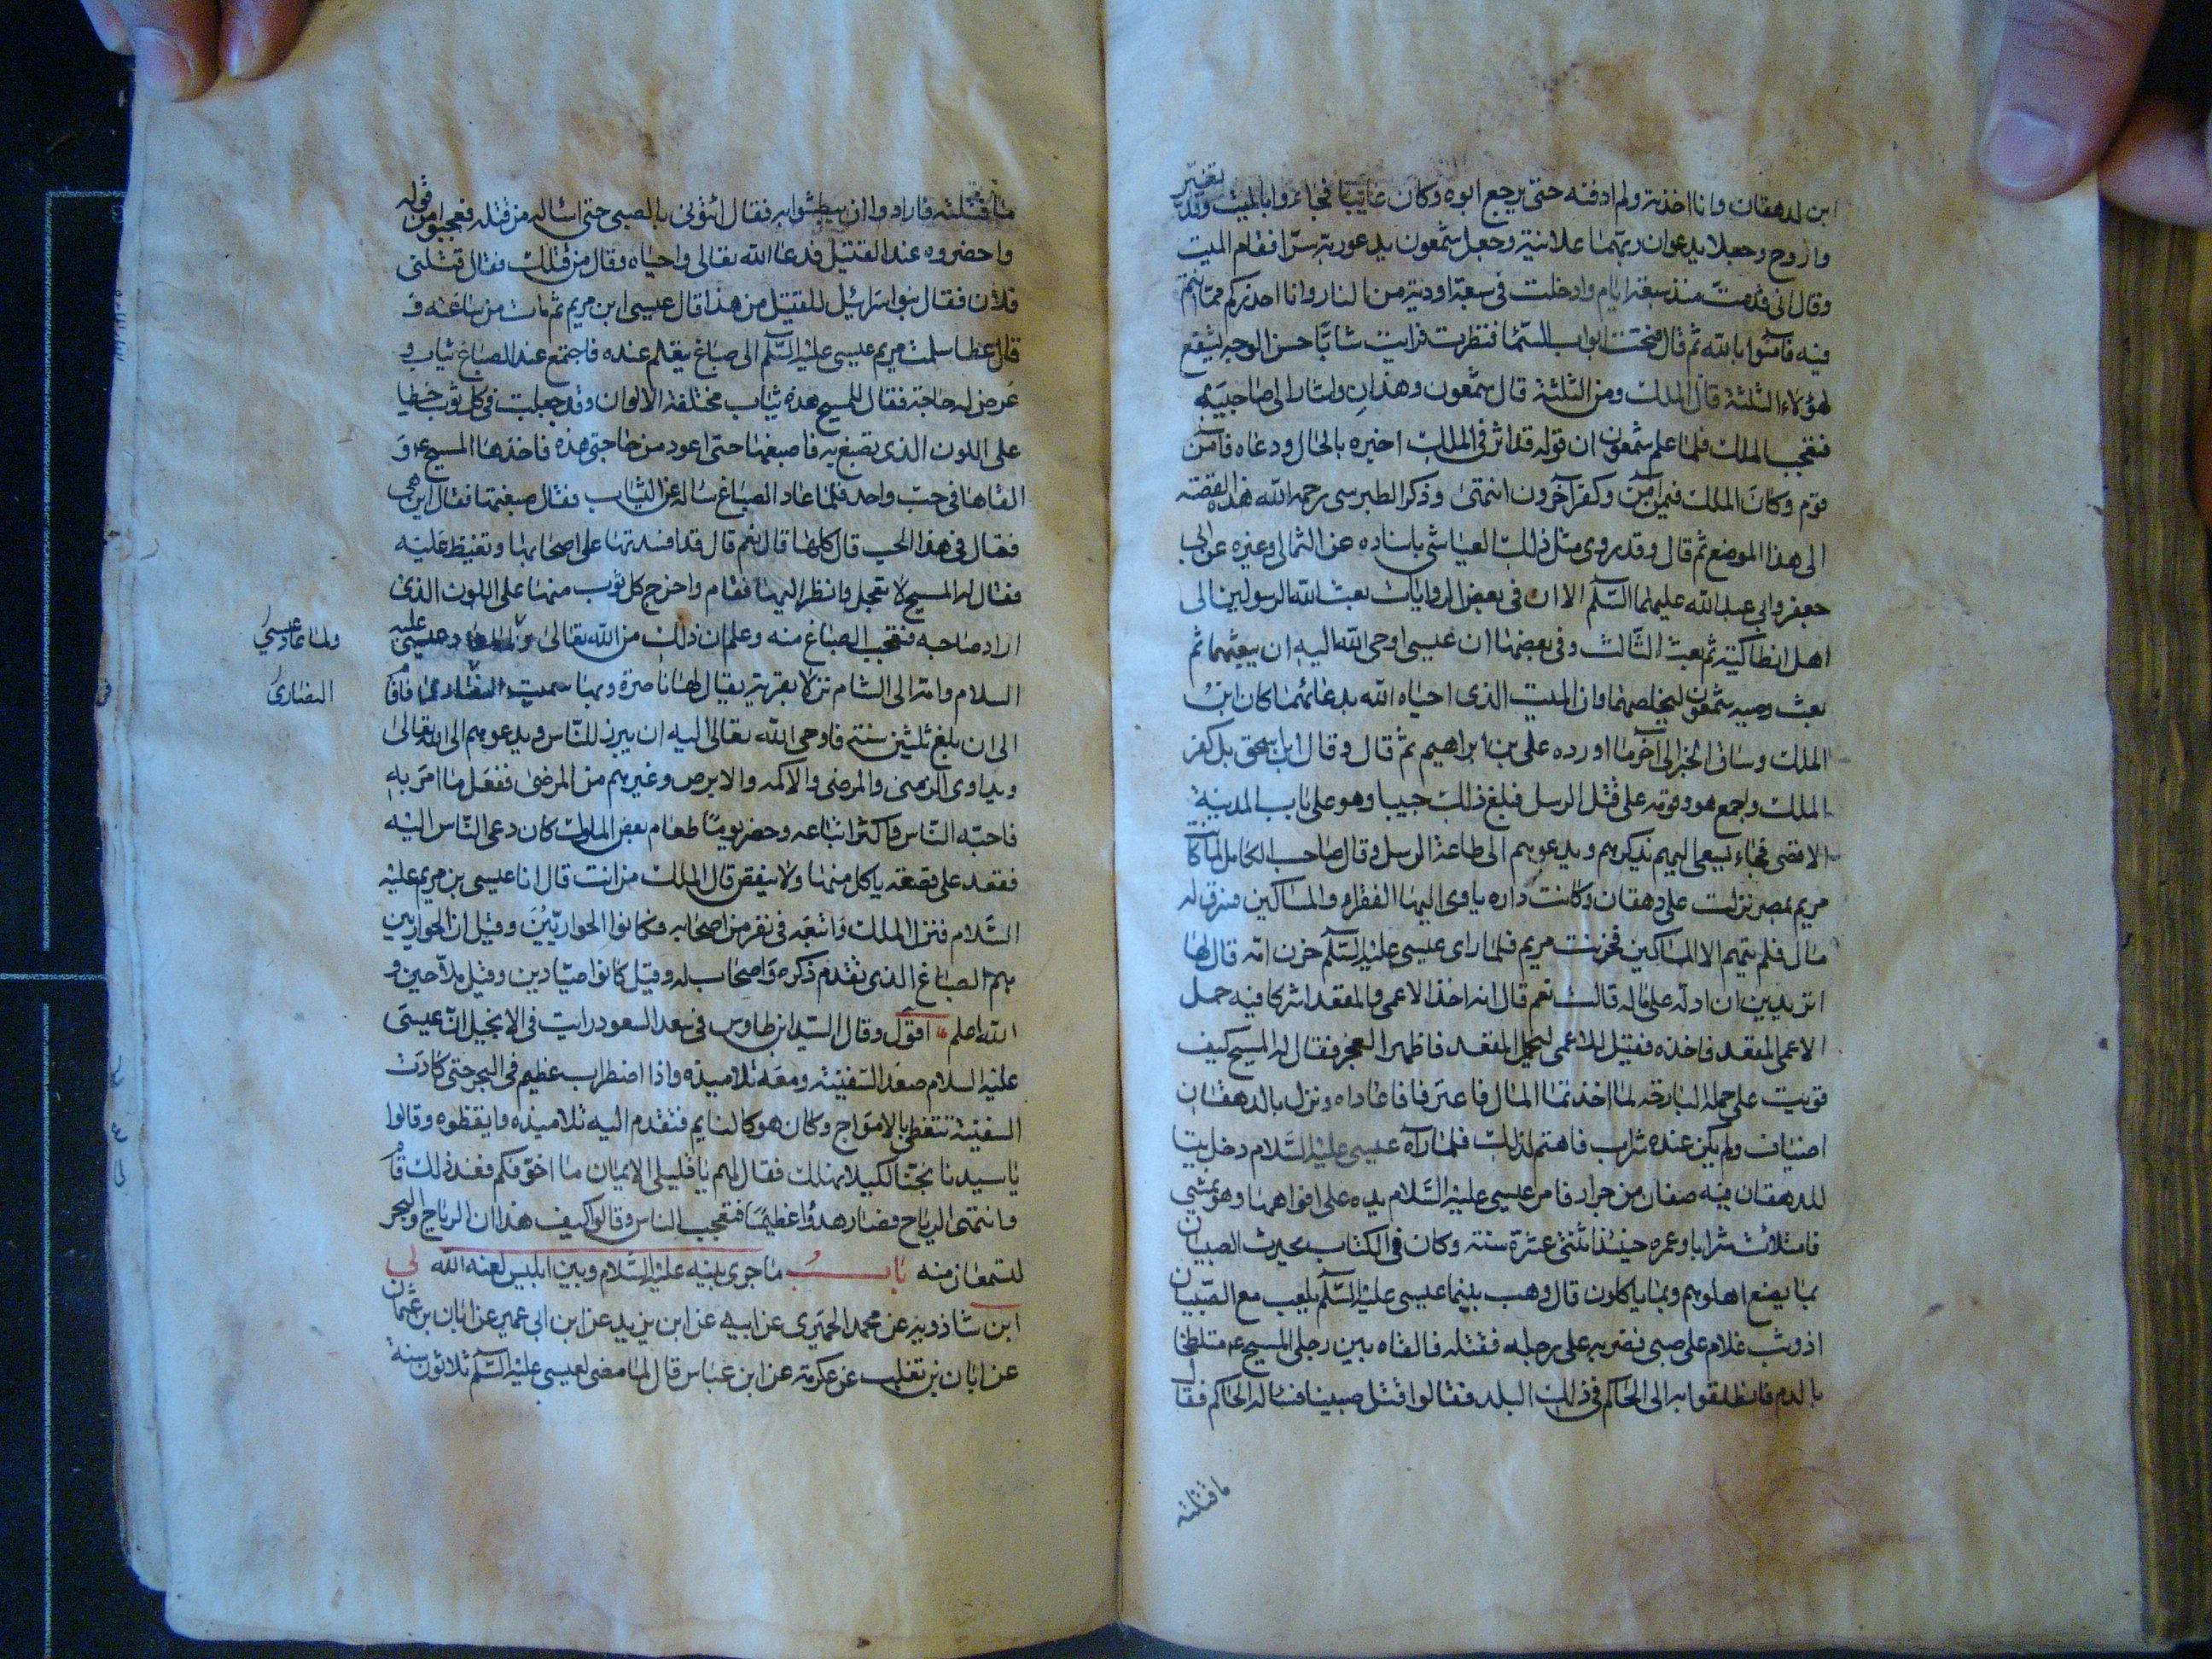 ابن لدهقان وانا اخذته ولم ادفنه حتى يرجع ابوه وكان غايبا فجاءوا بالميت وقد تغير
واروح وجعلا يدعوان ربهما علانية وجعل شمعون يدعو ربه سرا فقام الميت
وقال اني قد مت منذ سبعة ايام وادخلت في سبعة اودية من النار وانا احذركم مما انتم
فيه فآمنوا بالله ثم قال فتحت ابواب السما فنظرت فرايت شابا حسن الوجه يشفع
لهؤلاء الثلثة قال الملك ومن الثلثة قال شمعون وهذان واشار الى صاحبيه
فتعجب الملك فلما علم شمعون ان قوله قد اثر في الملك اخبره بالحال ودعاه فآمن
قوم وكان الملك فيمن آمن وكفر آخرون انتهى وذكر الطبرسي رحمه الله هذه القصة
الى هذا الموضع ثم قال وقد روى مثل ذلك العياشي باسناده عن الثمالي وغيره عن ابي
جعفر وابي عبد الله عليهما السلم الا ان في بعض الروايات بعث الله الرسولين الى
اهل انطاكية ثم بعث الثالث وفي بعضها ان عيسى اوحى الله اليه ان يبعثهما ثم
بعث وصيه شمعون ليخلصهما وان الميت الذي احياه الله بدعائهما كان ابن
الملك وساق الخبر الى آخر ما اورده علي بن ابراهيم ثم قال وقال ابن اسحق بل كفر
الملك واجمع هو وقومه على قتل الرسل فبلغ ذلك حبيبا وهو على باب المدينة
الاقصى فجاء يسعى اليهم يذكرهم ويدعوهم الى طاعة الرسل وقال صاحب الكامل لما كا
مريم بمصر نزلت على دهقان وكانت داره ياوى اليها الفقراء والمساكين فسرق له
مال فلم يتهم الا المساكين فحزنت مريم فلما راى عيسى عليه السلم حزن امه قال لها
اتريدين ان ادله على ماله قالت نعم قال انه اخذه الاعمى والمقعد اشتركا فيه حمل
الاعمى المقعد فاخذه فقيل للاعمى ليحمل المقعد فاظهر العجز فقال له المسيح كيف
قويت على حمله البارحة لما اخذتما المال فاعترفا فاعاداه ونزل بالدهقان
اضياف ولم يكن عنده شراب فاهتم لذلك فلما رآه عيسى عليه السلام دخل بيتا
للدهقان فيه صفان من جرار فامر عيسى عليه السلام يده على افواهها وهو يمشي
فامتلأت شرابا وعمره حينئذ اثنتى عشرة سنة وكان في الكتاب يحدث الصبيان
بما يصنع اهلوهم وبما ياكلون قال وهب بينما عيسى عليه السلم يلعب مع الصبيان
اذ وثب غلام على صبي فضربه على رجله فقتله فالقاه بين رجلي المسيح ع متلطخا
بالدم فانطلقوا به الى الحاكم في ذلك البلد فقالوا قتل صبينا فسأله الحاكم فقال
ما قتلته
ما قتلته فارادوا ان يبطشوا به فقال ائتوني بالصبي حتى اسأله من قتله فعجبوا من قوله
واحضروه عند القتيل فدعا الله تعالى واحياه وقال من قتلك فقال قتلني
فلان فقال بنو اسرائيل للقتيل من هذا قال عيسى ابن مريم ثم مات من ساعته و
قال عطا سلمت مريم عيسى عليه السلم الى صباغ يتعلم عنده فاجتمع عند الصباغ ثياب و
عرض له حاجة فقال للمسيح هذه ثياب مختلفة الالوان وقد جعلت في كل ثوب خيطا
على اللون الذي تصبغ به فاصبغها حتى اعود من حاجتي هذه فاخذها المسيح ع و
القاها في حب واحد فلما عاد الصباغ سأله عن الثياب فقال صبغتها فقال اين هي
فقال في هذا الحب قال كلها قال نعم قال قد افسدتها على اصحابها وتغيظ عليه
فقال له المسيح لا تعجل وانظر اليها فقام واخرج كل ثوب منها على اللون الذي
اراد صاحبه فتعجب الصباغ منه وعلم ان ذلك من الله تعالى عليه
ولما عاد عيسى
السلام وامه الى الشام نزلا بقرية يقال لها ناصرة وبها سميت فاقا
النصارى
الى ان بلغ ثلثين سنة فاوحى الله تعالى اليه ان يبرز للناس ويدعوهم الى الله تعالى
ويداوى الزمنى والمرضى والاكمه والابرص وغيرهم من المرضى ففعل ما امر به
فاحبه الناس وكثر اتباعه وحضر يوما طعام بعض الملوك كان دعى الناس اليه
فقعد على قصعة ياكل منها ولا ينقص قال الملك من انت قال انا عيسى بن مريم عليه
السلام فنزل الملك واتبعه في نفر من اصحابه فكانوا الحواريين وقيل ان الحواريين
هم الصباغ الذي تقدم ذكره واصحاب له وقيل كانوا صيادين وقيل ملاحين و
الله اعلم اقول وقال السيد ابن طاوس في سعد السعود رايت في الانجيل ان عيسى
عليه السلام صعد السفينة ومعه تلاميذه واذا اضطراب عظيم في البحر حتى كادت
السفينة تتغطى بالامواج وكان هو كالنايم فتقدم اليه تلاميذه وايقظوه وقالوا
يا سيدنا نجنا لكيلا نهلك فقال لهم يا قليلي الايمان ما اخوفكم فعند ذلك قام
وانتهى الرياح فصار هدوا عظيما فتعجب الناس وقالوا كيف هذا ان الرياح والبحر
لتسمعان منه باب ما جرى بينه عليه السلام وبين ابليس لعنه الله لي
ابن شاذويه عن محمد الحميري عن ابيه عن ابن يزيد عن ابن ابي عمير عن ابان بن عثمان
عن ابان بن تغلب عن عكرمة عن ابن عباس قال لما مضى لعيسى عليه السلم ثلاثون سنة